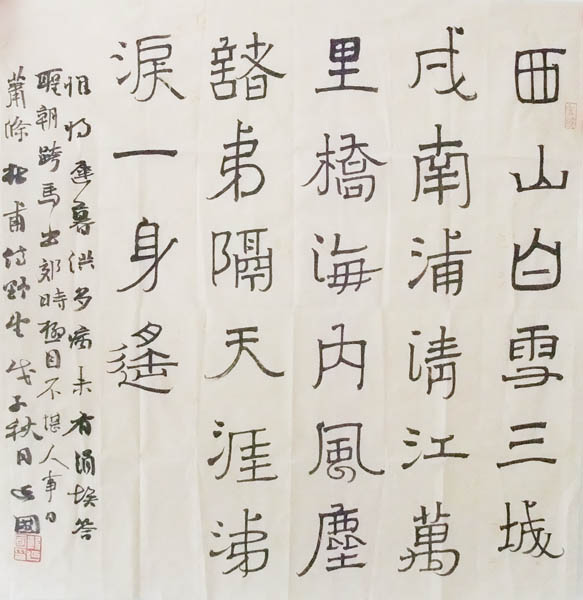 西山白雪三城
戍南浦清江萬
里橋海內風塵
諸弟隔天涯涕
淚一身遙
惟将遲暮供多病未有涓埃答
聖朝跨馬出郊時極目不堪人事日
蕭條 杜甫詩野望 戊子秋月 國